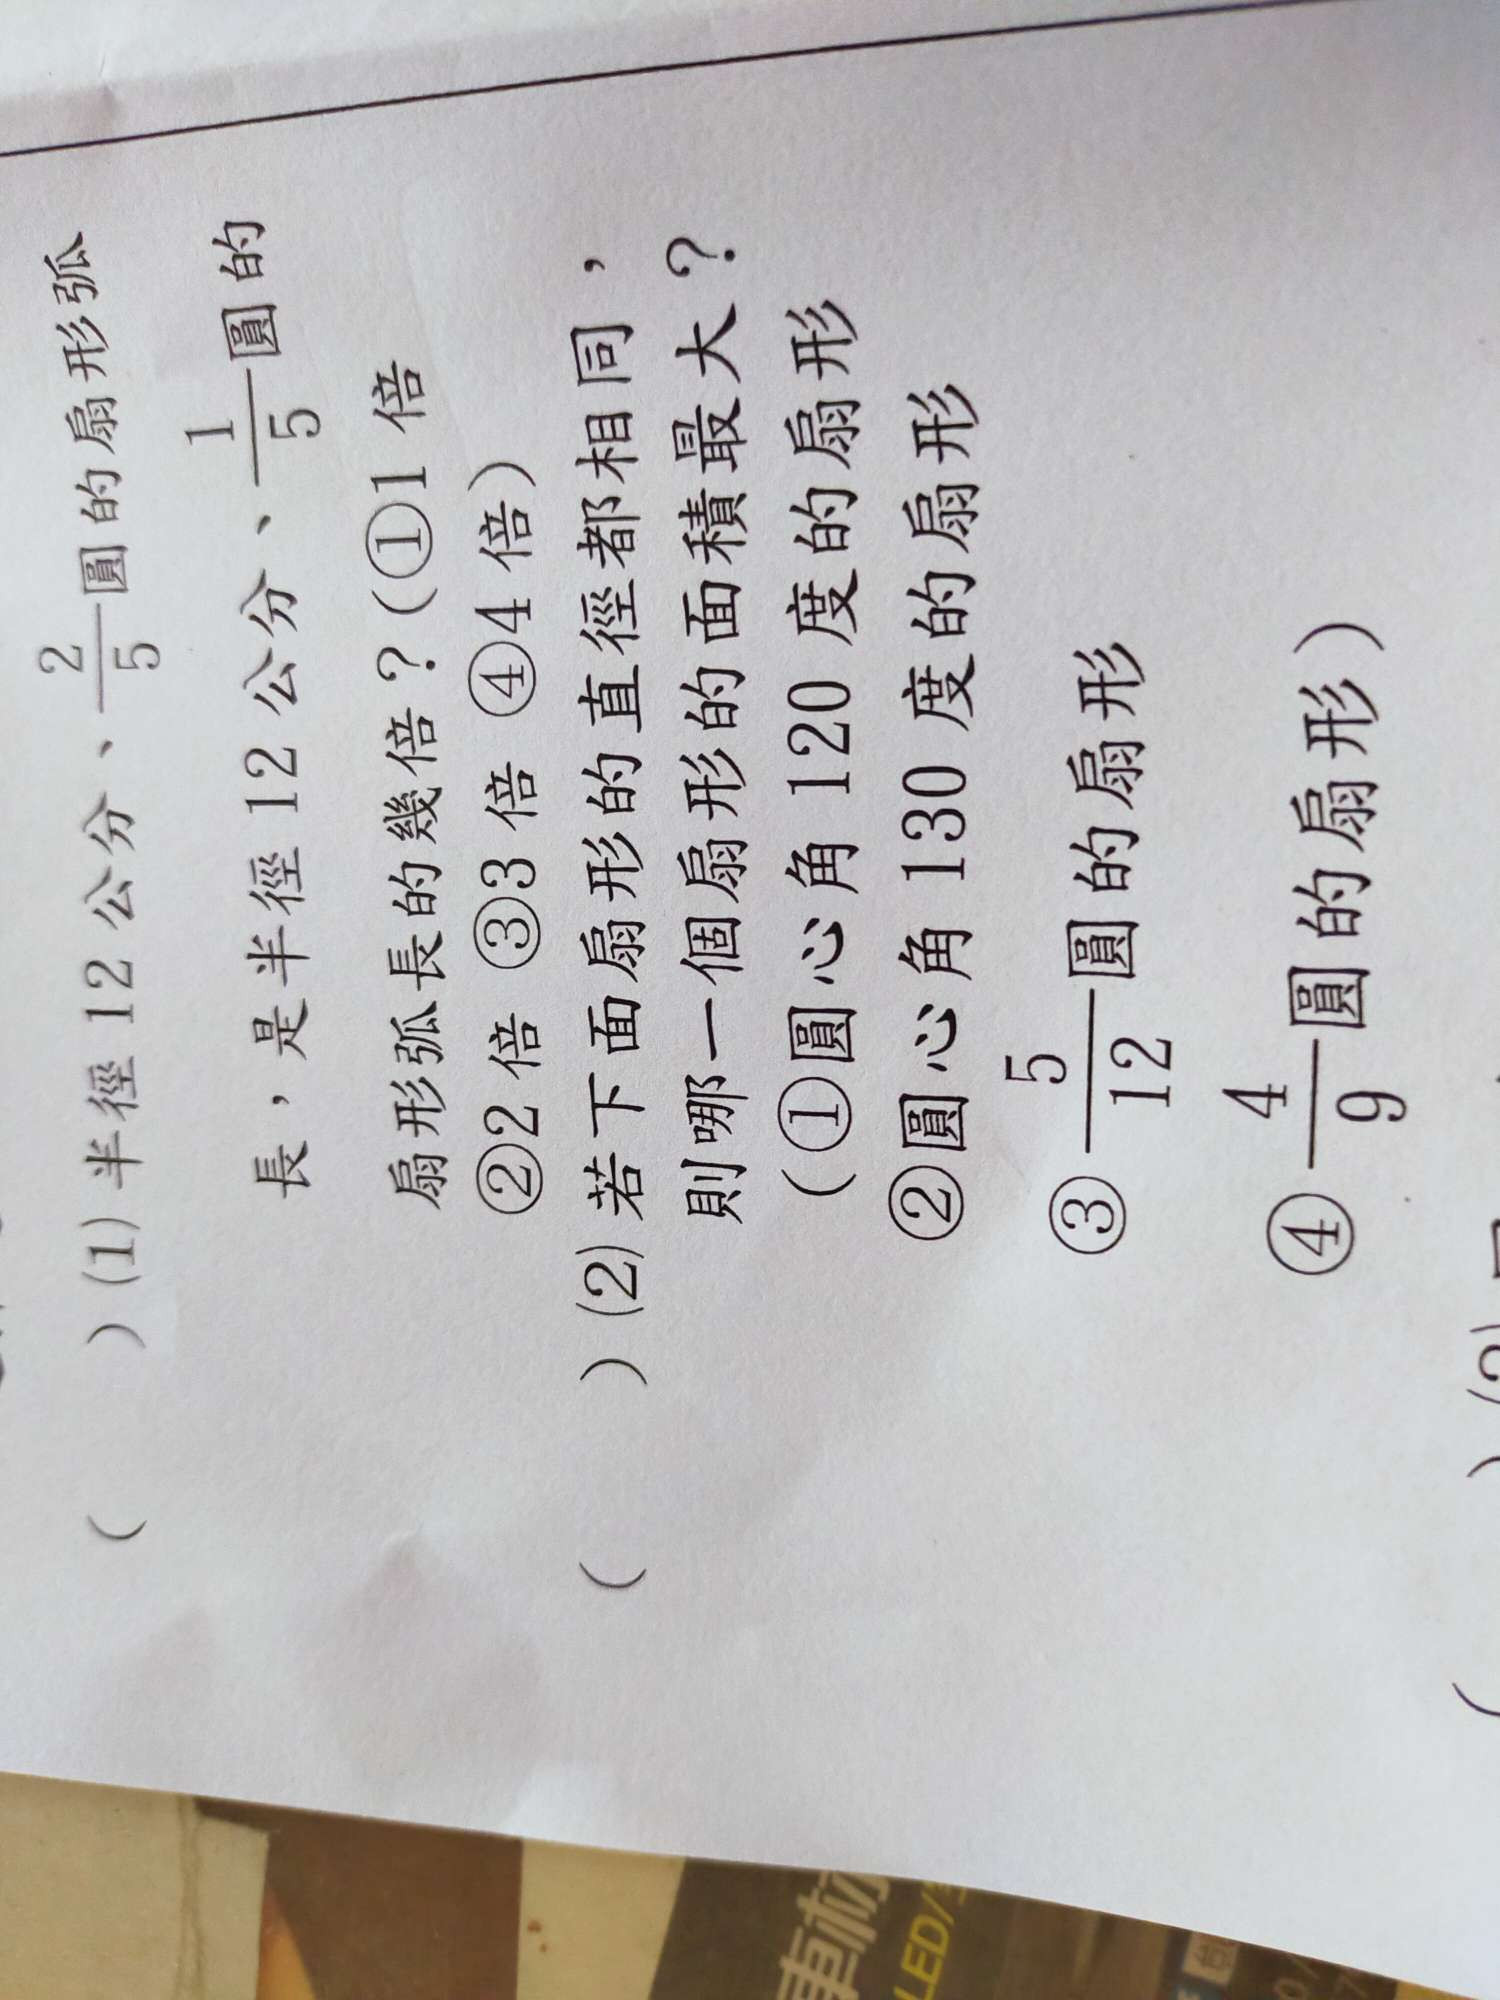 ( )(1)半徑12公分、2/5圓的扇形弧
長，是半徑12公分、1/5圓的
扇形弧長的幾倍？(①1倍
②2倍 ③3倍 ④4倍)
( )(2)若下面扇形的直徑都相同，
則哪一個扇形的面積最大？
(①圓心角120度的扇形
②圓心角130度的扇形
③5/12圓的扇形
④4/9圓的扇形)
車材
LED/